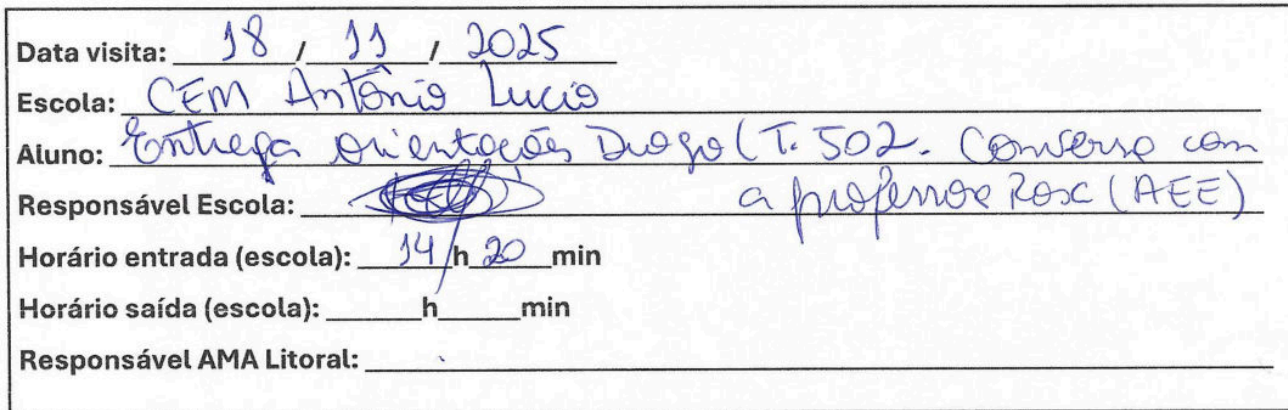 Data visita: 18 / 11 / 2025
Escola: CEM Antônio Lucio
Aluno: Entrega orientações Diogo (T. 502. Conversa com
a professora Rosa (AEE)
Responsável Escola:
Horário entrada (escola): 14 h 20 min
Horário saída (escola): ______h______min
Responsável AMA Litoral: